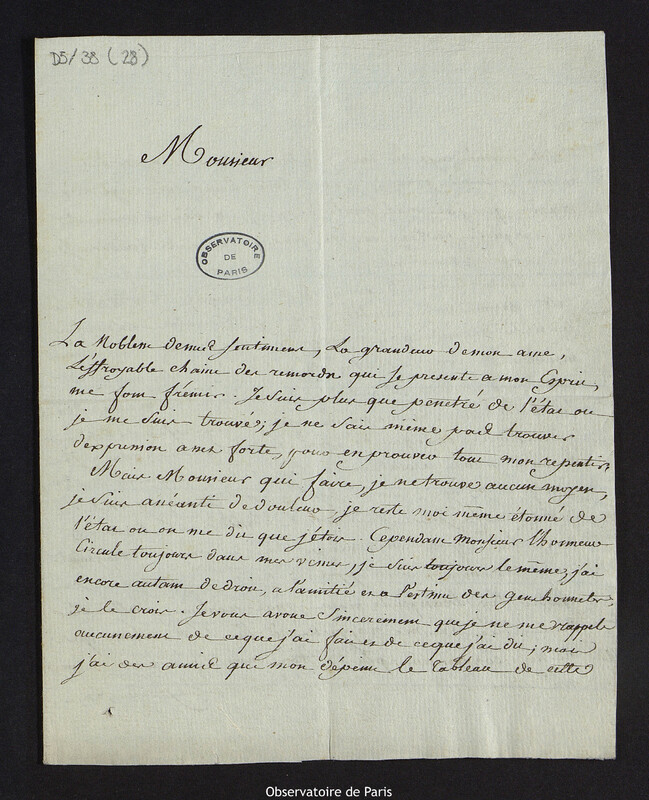 D5/38 (28)
Monsieur
OBSERVATOIRE
DE
PARIS
La Noblesse de mes sentimens, La grandeur de mon ame,
L'effroyable chaine des remords qui se presente a mon Esprit,
me font frémir. Je suis plus que penetré de l'état ou
je me suis trouvé; je ne sais même pas trouver
d'expression assez forte, pour en prouver tout mon repentir.
Mais Monsieur qui faire, je ne trouve aucun moyen,
je suis anéanti de douleur, je reste moi même étonné de
l'état ou on me dit que j'étois. Cependant Monsieur l'honneur
Circule toujours dans mes veines, je suis toujours le même, j'ai
encore autant de droit, a l'amitié et a l'estime des gens honnetes,
je le crois. Je vous avoue sincerement que je ne me rappele
aucunement de ce que j'ai fait et de ce que j'ai dit; mais
j'ai des amis qui m'on dépeint le tableau de cette
Observatoire de Paris